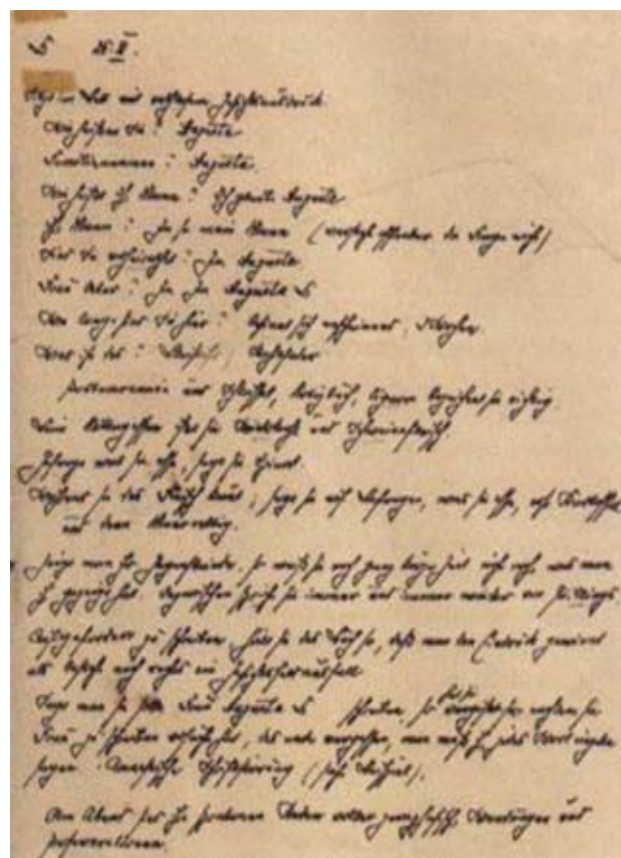 26. II.
Sitzt im Bett mit ratlosem Gesichtsausdruck
Wie heißen Sie? Auguste
Familienname? Auguste.
Wie heißt Ihr Mann? Ich glaube Auguste
Ihr Mann? Ja so mein Mann (versteht offenbar die Frage nicht)
Sind Sie verheiratet? Zu Auguste.
Frau D? Ja zu Auguste D
Wie lange sind Sie hier? 3 Wochen.
Was ist das? Bleistift,
Portemonnaie und Schlüssel, Notizbuch, Cigarre bezeichnet sie richtig.
Beim Mittagessen ißt sie und Schweinefleisch.
Gefragt was sie esse, sagt sie Spinat.
Während sie das Fleisch kaut, sagt sie auf Befragen, was sie esse, Kartoffel
und dann Meerrettig.
Zeigt man ihr Gegenstände, so weiß sie nach ganz kurzer Zeit nicht mehr was man
ihr gezeigt hat. Dazwischen spricht sie immer und immer wieder von Zwillings.
Aufgefordert zu schreiben, hält sie das Buch so, daß man den Eindruck gewinnt
als besteht nach rechts ein Gesichtsfeldausfall
man sie Frau Auguste D schreiben, so
Frau zu schreiben, das andere vergessen, man muß ihr jedes Wort
sagen. Amnestische Schriftstörung
Am Abend ihre spontanen Reden voller Wendungen und
Perseverationen.